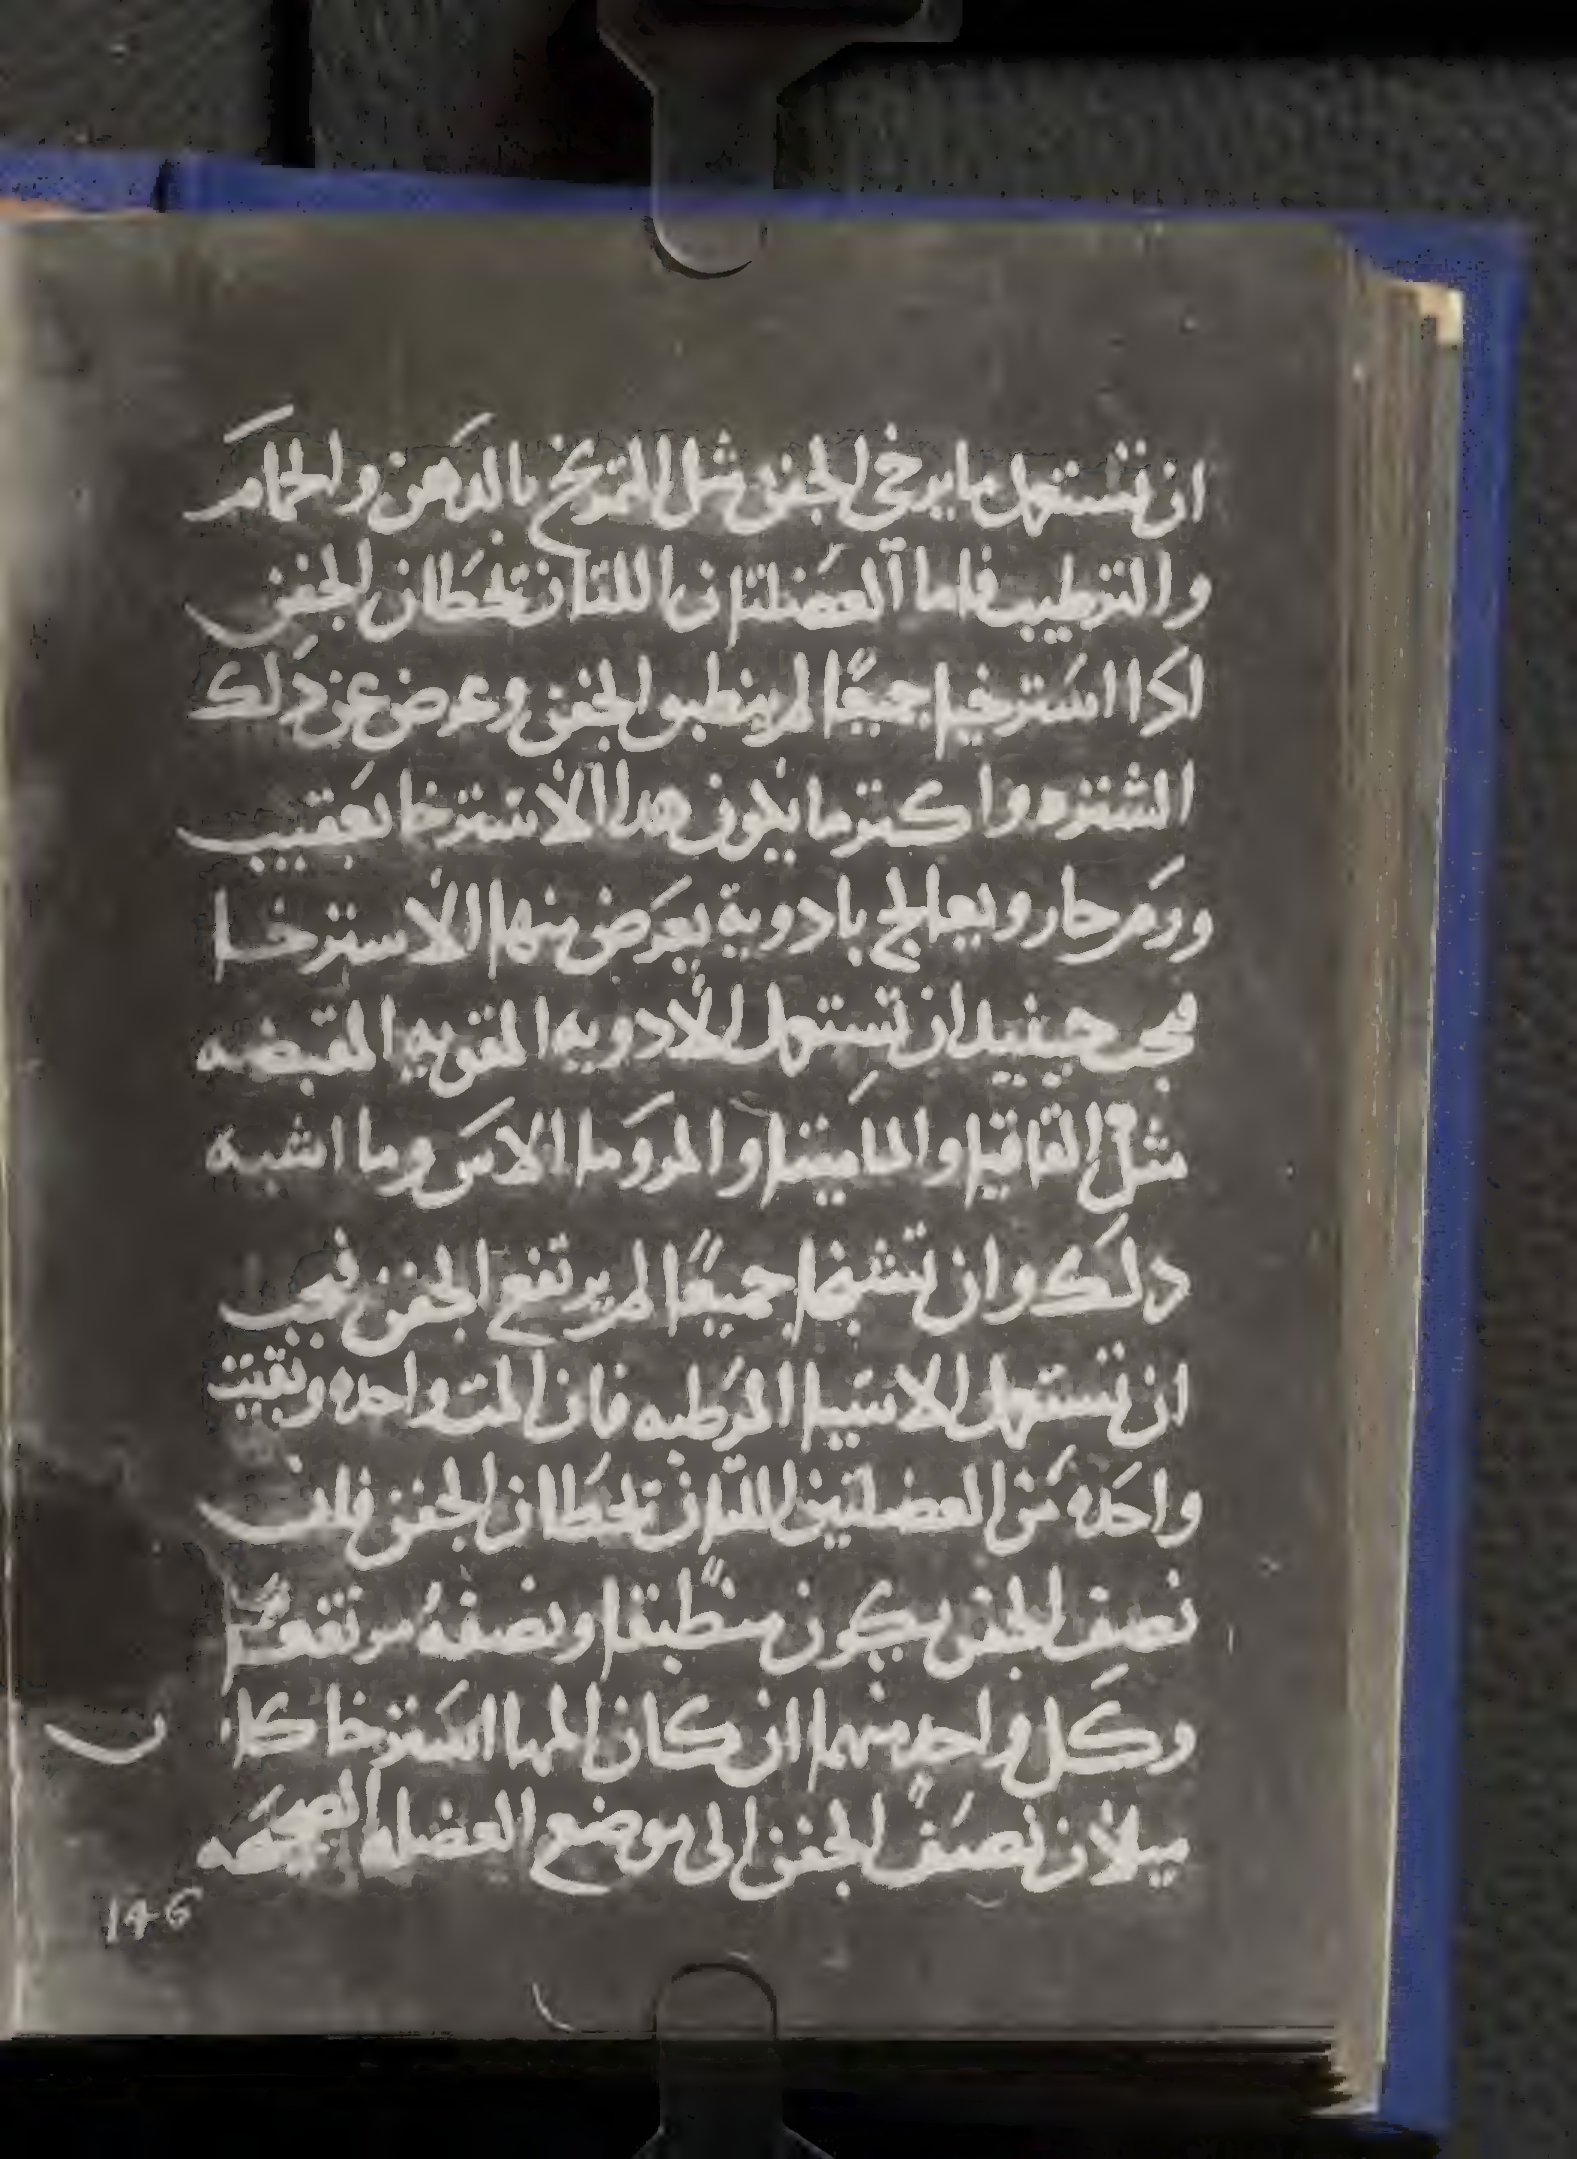 ان تستعمل ما يرخي الجفن مثل التمريخ بالدهن والحمام
والترطيب فاما العضلتان اللتان تحطان الجفن
اذا استرخيا جميعًا لم ينطبق الجفن وعرض عن ذلك
الشتره واكتر ما يكون هدا الاسترخا بعقيب
ورم حار ويعالج بادوية يعرض منها الاسترخا
فيجب حينيد ان تستعمل الأدويه المقويه المقبضه
مثل القاقيا والماميتا والمر وما الاس وما اشبه
دلك وان تشنجا جميعًا لم يرتفع الجفن فيجب
ان تستعمل الاشيا المرطبه فان المت واحده وبقيت
واحده من العضلتين اللتان تحطان الجفن فان
نصف الجفن يكون منطبقًا ونصفه مرتفعًا
وكل واحده منهما ان كان المها استرخا كا ن
ميلان نصف الجفن الى موضع العضله الصحيحه
146